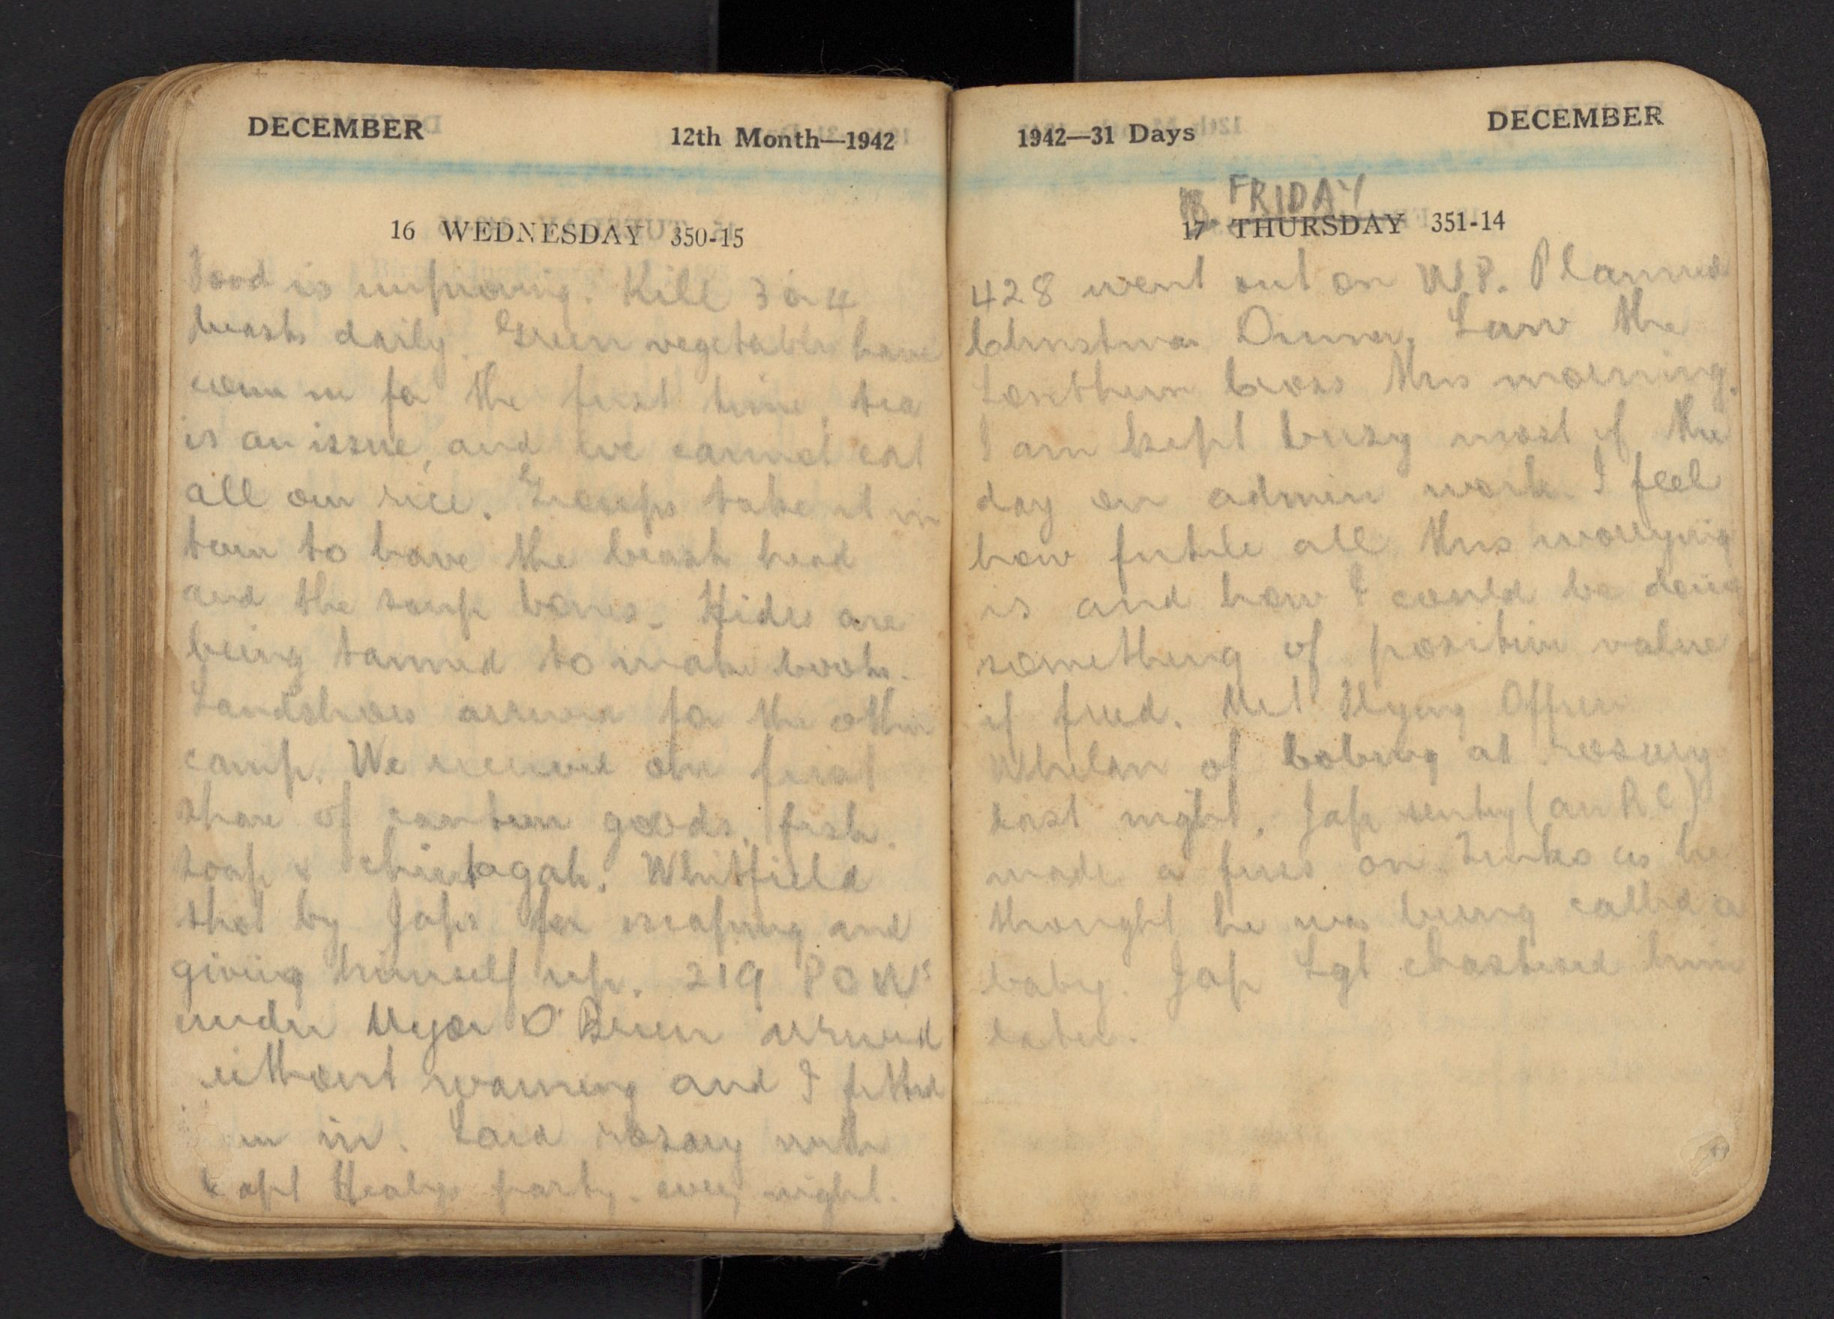 DECEMBER
12th Month—1942
16 WEDNESDAY 350-15
Food is improving. Kill 3 or 4
beasts daily. Green vegetables have
come in for the first time, tea
is an issue, and we cannot eat
all our rice. Groups take it in
turn to have the beasts head
and the soup bones. Hides are
being tanned to make boots.
Landshoes arrived for the other
camp. We received our first
share of canteen goods, fish.
soap & chintagah. Whitfield
shot by Japs for escaping and
giving himself up. 219 POWs
under Major O'Brien arrived
without warning and I fitted
em in. Said rosary with
Capt Healys party. every night.
1942—31 Days
DECEMBER
18. FRIDAY
17 THURSDAY 351-14
428 went out on W.P. Planned
Christmas Dinner. Saw the
Southern Cross this morning.
I am kept busy most of the
day on admin work. I feel
how futile all this worrying
is and how I could be doing
something of positive value
if freed. Met Flying Officer
Whelan of Coburg at rosary
last night. Jap sentry (an R C)
made a fuss on Tenko as he
thought he was being called a
baby. Jap Sgt chastised him
later.